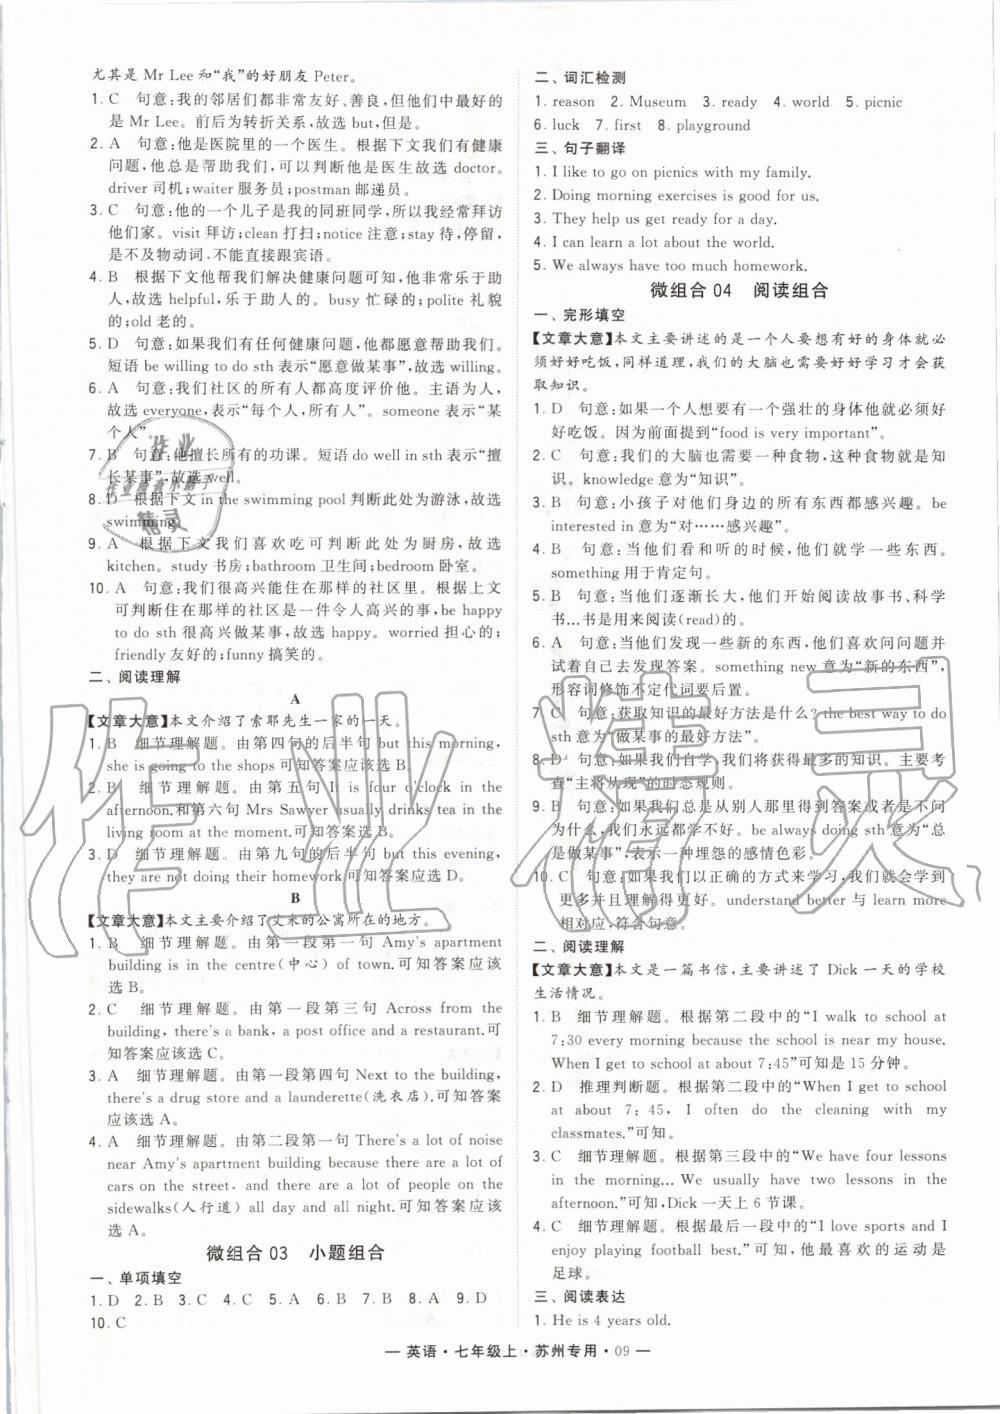 尤其是 Mr Lee 和“我”的好朋友 Peter。
1. C 句意:我的邻居们都非常友好、善良,但他们中最好的是
Mr Lee。前后为转折关系,故选 but,但是。
2. A 句意:他是医院里的一个医生。根据下文我们有健康
问题,他总是帮助我们,可以判断他是医生故选 doctor。
driver 司机;waiter 服务员;postman 邮递员。
3. C 句意:他的一个儿子是我的同班同学,所以我经常拜访
他们家。visit 拜访;clean 打扫;notice 注意;stay 停留,
是不及物动词,不能直接跟宾语。
4. B 根据下文他帮我们解决健康问题可知,他非常乐于助
人,故选 helpful,乐于助人的。busy 忙碌的;polite 礼貌
的;old 老的。
5. D 句意:如果我们有任何健康问题,他都愿意帮助我们。
短语 be willing to do sth 表示“愿意做某事”,故选 willing。
6. A 句意:我们社区的所有人都高度评价他。主语为人,
故选 everyone,表示“每个人,所有人”。someone 表示“某
个人”。
7. B 句意:他擅长所有的功课。短语 do well in sth 表示“擅
长某事”,故选 well。
8. D 根据下文 in the swimming pool 判断此处为游泳,故选
swimming。
9. A 根据下文我们喜欢吃可判断此处为厨房,故选
kitchen。study 书房;bathroom 卫生间;bedroom 卧室。
10. A 句意:我们很高兴能住在那样的社区里。根据上文
可判断住在那样的社区是一件令人高兴的事,be happy
to do sth 很高兴做某事,故选 happy。worried 担心的;
friendly 友好的;funny 搞笑的。
二、阅读理解
A
【文章大意】本文介绍了索耶先生一家的一天。
1. B 细节理解题。由第四句的后半句 but this morning,
she is going to the shops 可知答案应该选 B。
2. B 细节理解题。由第五句 It is four o'clock in the
afternoon.和第六句 Mrs Sawyer usually drinks tea in the
living room at the moment.可知答案应该选 B。
3. D 细节理解题。由第九句的后半句 but this evening,
they are not doing their homework.可知答案应该选 D。
B
【文章大意】本文主要介绍了艾米的公寓所在的地方。
1. B 细节理解题。由第一段第一句 Amy's apartment
building is in the centre(中心) of town.可知答案应该
选 B。
2. C 细节理解题。由第一段第三句 Across from the
building, there's a bank, a post office and a restaurant.可
知答案应该选 C。
3. A 细节理解题。由第一段第四句 Next to the building,
there's a drug store and a launderette(洗衣店).可知答案
应该选 A。
4. A 细节理解题。由第二段第一句 There's a lot of noise
near Amy's apartment building because there are a lot of
cars on the street, and there are people on the
sidewalks(人行道) all day and all night.可知答案应该
选 A。
微组合 03 小题组合
一、单项填空
1. D 2. B 3. C 4. C 5. A 6. B 7. B 8. A 9. D
10. C
二、词汇检测
1. reason 2. Museum 3. ready 4. world 5. picnic
6. luck 7. first 8. playground
三、句子翻译
1. I like to go on picnics with my family.
2. Doing morning exercises is good for us.
3. They help us get ready for a day.
4. I can learn a lot about the world.
5. We always have too much homework.
微组合 04 阅读组合
一、完形填空
【文章大意】本文主要讲述的是一个人要想有好的身体就必
须好好吃饭,同样道理,我们的大脑也需要好好学习才会获
取知识。
1. D 句意:如果一个人想要有一个强壮的身体他就必须好
好吃饭。因为前文提到“food is very important”。
2. C 句意:我们的大脑也需要一种食物,这种食物就是知
识。knowledge 意为“知识”。
3. B 句意:小孩子对他们身边的所有东西都感兴趣。be
interested in 意为“对……感兴趣”。
4. B 句意:当他们看和听的时候,他们就学了一些东西。
something 用于肯定句。
5. B 句意:当他们逐渐长大,他们开始阅读故事书、科学
书…书是用来阅读(read)的。
6. A 句意:当他们发现一些新的东西,他们喜欢问问题并
试着自己去发现答案。something new 意为“新的东西”,
形容词修饰不定代词要后置。
7. C 句意:获取知识的最好方法是什么? the best way to do
sth 意为“做某事的最好方法”。
8. D 句意:如果我们自学,我们将获得更多知识。主要考
查“主将从现”的时态规则。
9. B 句意:如果我们总是从别人那里得到答案或者是不问
为什么,我们永远都学不好。be always doing sth 意为“总
是做某事”,表示一种埋怨的感情色彩。
10. C 句意:如果我们以正确的方式来学习,我们就会学到
更多并且理解得更好。understand better 与 learn more
相对应,符合句意。
二、阅读理解
【文章大意】本文是一篇书信,主要讲述了 Dick 一天的学校
生活情况。
1. B 细节理解题。根据第二段中的“I walk to school at
7:30 every morning because the school is near my house.
When I get to school at about 7:45”可知是 15 分钟。
2. D 推理判断题。根据第二段中的“When I get to school
at about 7: 45, I often do the cleaning with my
classmates.”可知。
3. C 细节理解题。根据第三段中的“We have four lessons
in the morning... We usually have two lessons in the
afternoon.”可知,Dick 一天上 6 节课。
4. C 细节理解题。根据最后一段中的“I love sports and I
enjoy playing football best.”可知,他最喜欢的运动是
足球。
三、阅读表达
1. He is 4 years old.
— 英语·七年级上·苏州专用·09 —
作业精灵